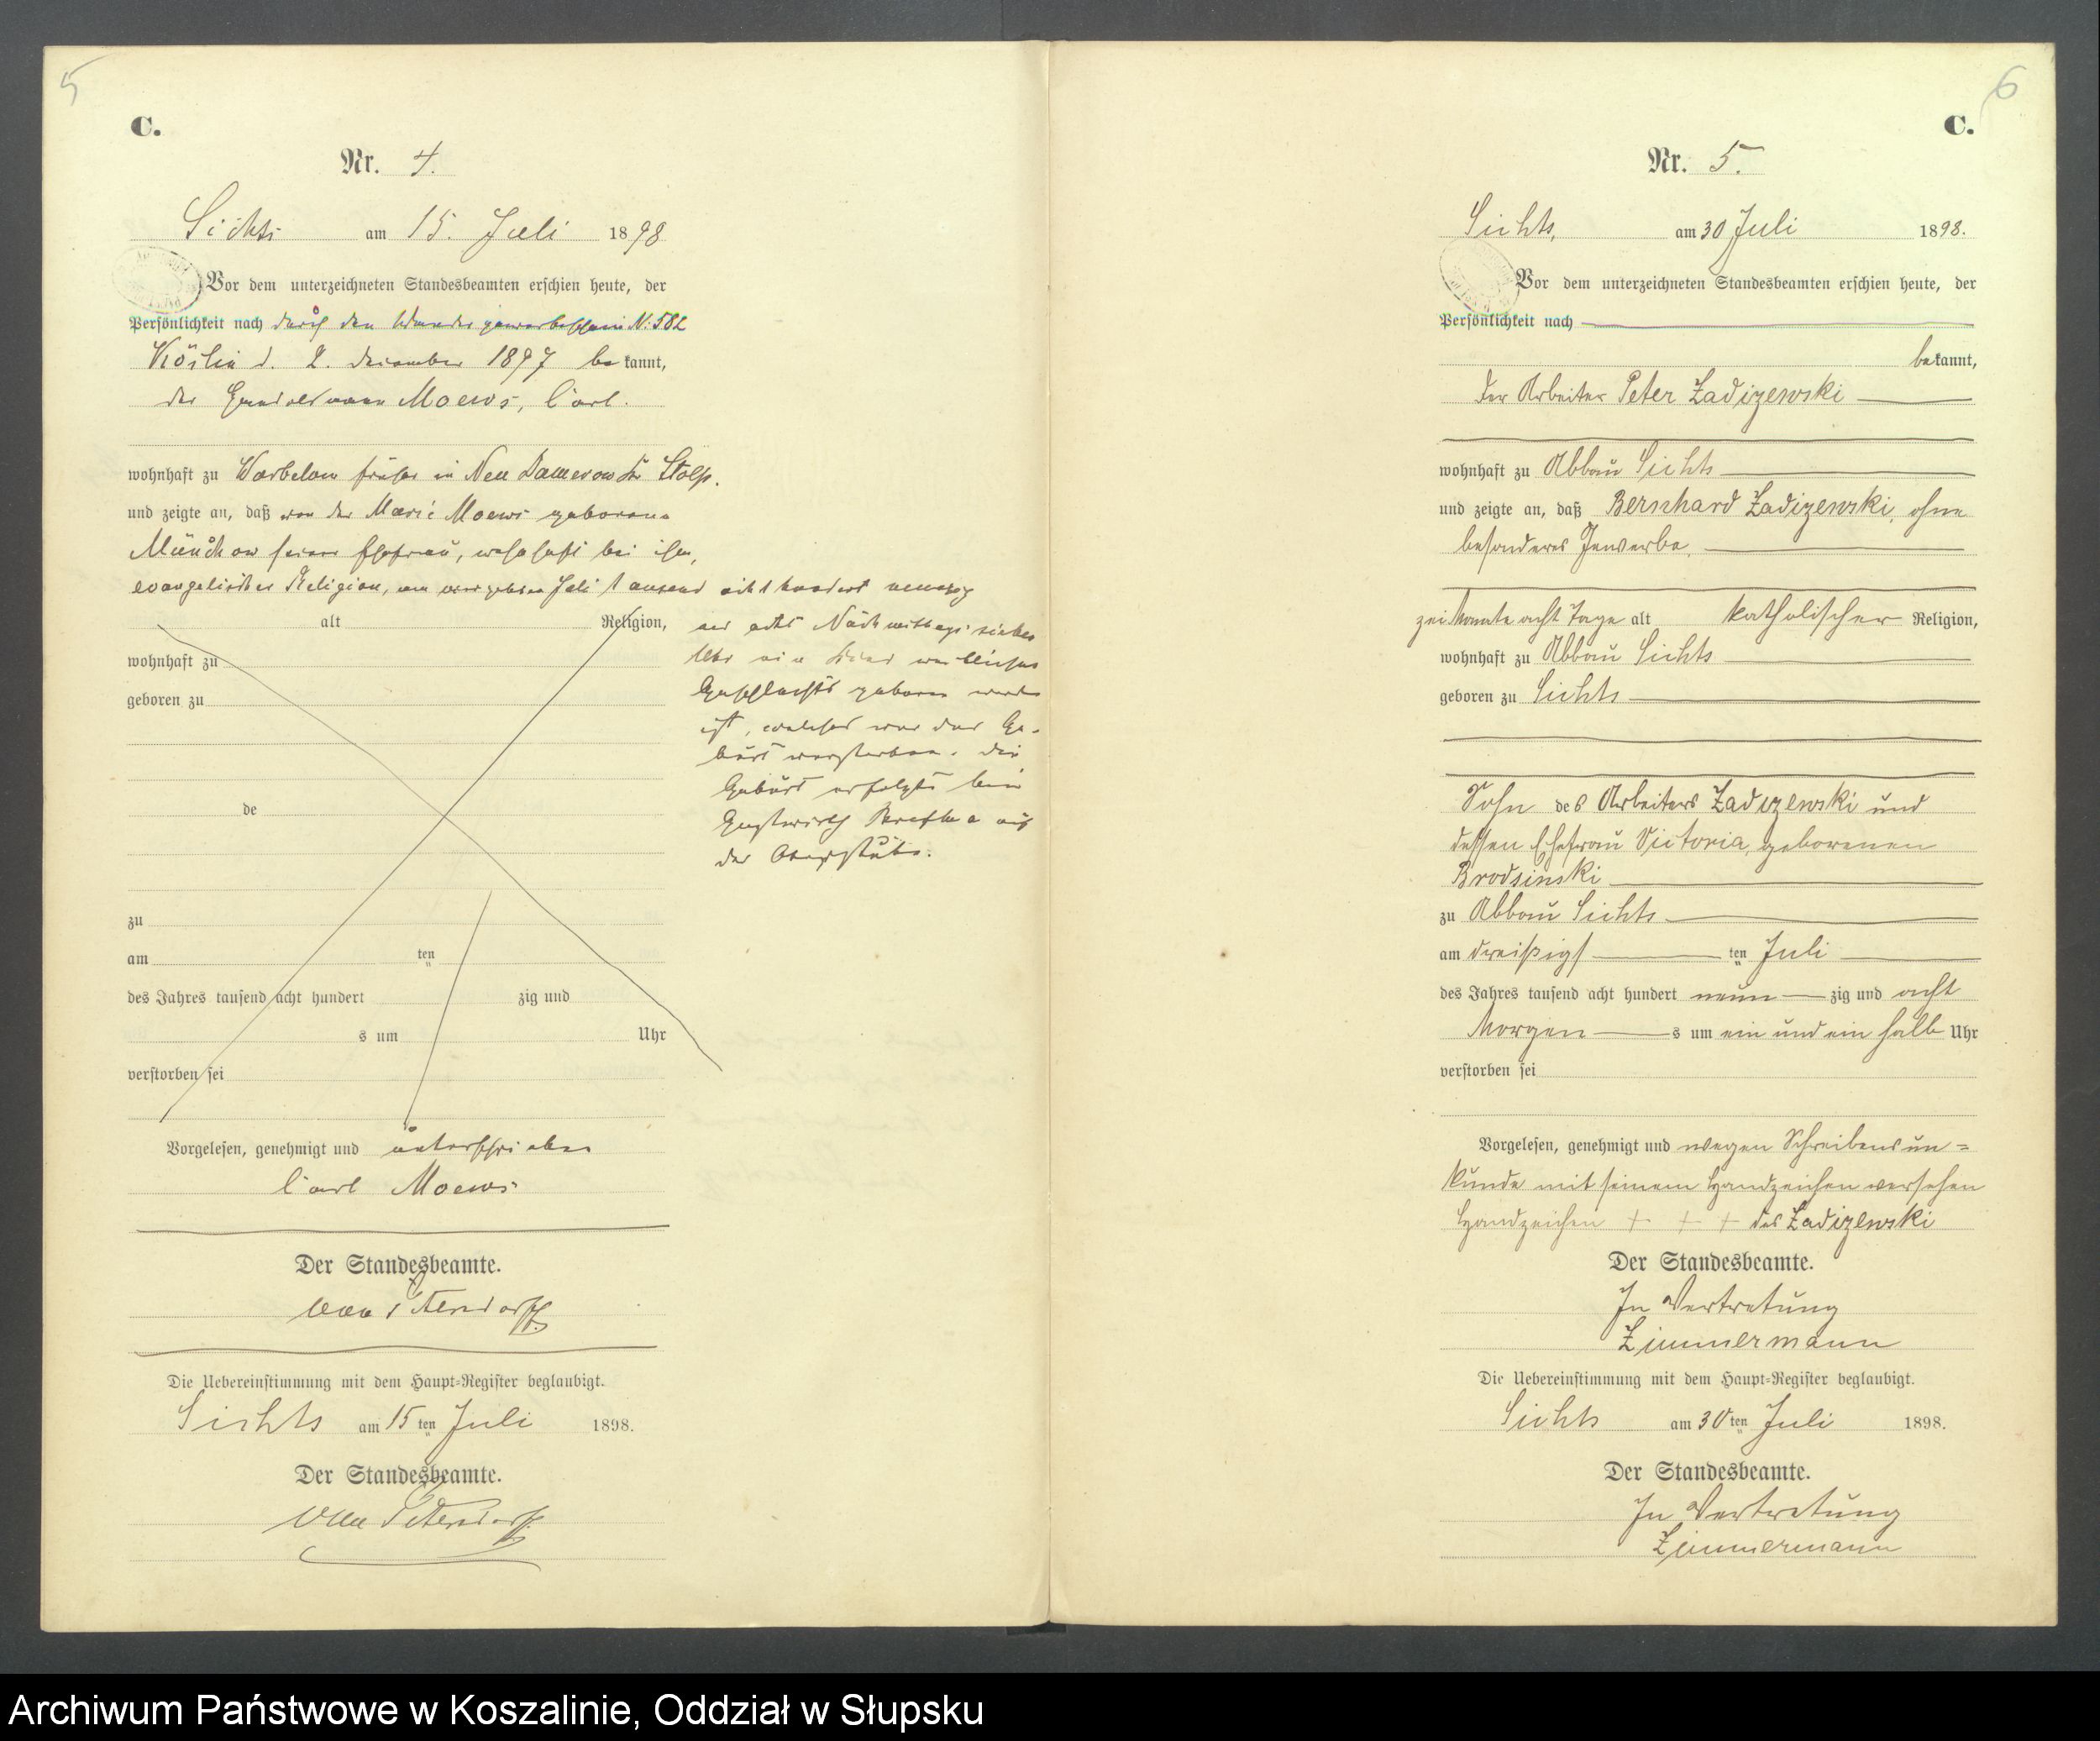 5
C.
Nr. 4.
Sichts am 15. Juli 1898
Vor dem unterzeichneten Standesbeamten erschien heute, der
Persönlichkeit nach durch den Wandergewerbeschein N. 582
Köslin d. 2. December 1897 bekannt,
der Handelsmann Moews, Carl.
wohnhaft zu Warbelow früher in Neu Damerow Kr Stolp.
und zeigte an, daß von der Marie Moews geborene
Münchow seiner Ehefrau, wohnhaft bei ihm,
evangelischer Religion, am Juli tausend acht hundert neunzig
alt Religion,
und acht Nachmittags sieben
wohnhaft zu
Uhr ein Kind weiblichen
geboren zu
Geschlechts geboren worden
ist, welches vor der Ge-
burt verstorben. Die
Geburt erfolgte beim
de
Gastwirth auf
der Oberstube.
zu
am ten
des Jahres tausend acht hundert zig und
s um Uhr
verstorben sei
Vorgelesen, genehmigt und unterschrieben
Carl Moews
Der Standesbeamte.
von Petersdorff.
Die Uebereinstimmung mit dem Haupt-Register beglaubigt.
Sichts am 15 ten Juli 1898.
Der Standesbeamte.
von Petersdorff.
6
C.
Nr. 5.
Sichts, am 30 Juli 1898.
Vor dem unterzeichneten Standesbeamten erschien heute, der
Persönlichkeit nach
bekannt,
der Arbeiter Peter Zadizewski
wohnhaft zu Abbau Sichts
und zeigte an, daß Bernhard Zadizewski, ohne
besonderes Gewerbe,
zei Monate acht Tage alt katholischer Religion,
wohnhaft zu Abbau Sichts
geboren zu Sichts
Sohn des Arbeiters Zadizewski und
dessen Ehefrau Victoria, geborenen
Brodsinski
zu Abbau Sichts
am dreißigs ten Juli
des Jahres tausend acht hundert neun zig und acht
Morgen s um ein und ein halb Uhr
verstorben sei
Vorgelesen, genehmigt und wegen Schreibensun=
kunde mit seinem Handzeichen versehen
Handzeichen + + + des Zadizewski
Der Standesbeamte.
In Vertretung
Zimmermann
Die Uebereinstimmung mit dem Haupt-Register beglaubigt.
Sichts am 30 ten Juli 1898.
Der Standesbeamte.
In Vertretung
Zimmermann
Archiwum Państwowe w Koszalinie, Oddział w Słupsku